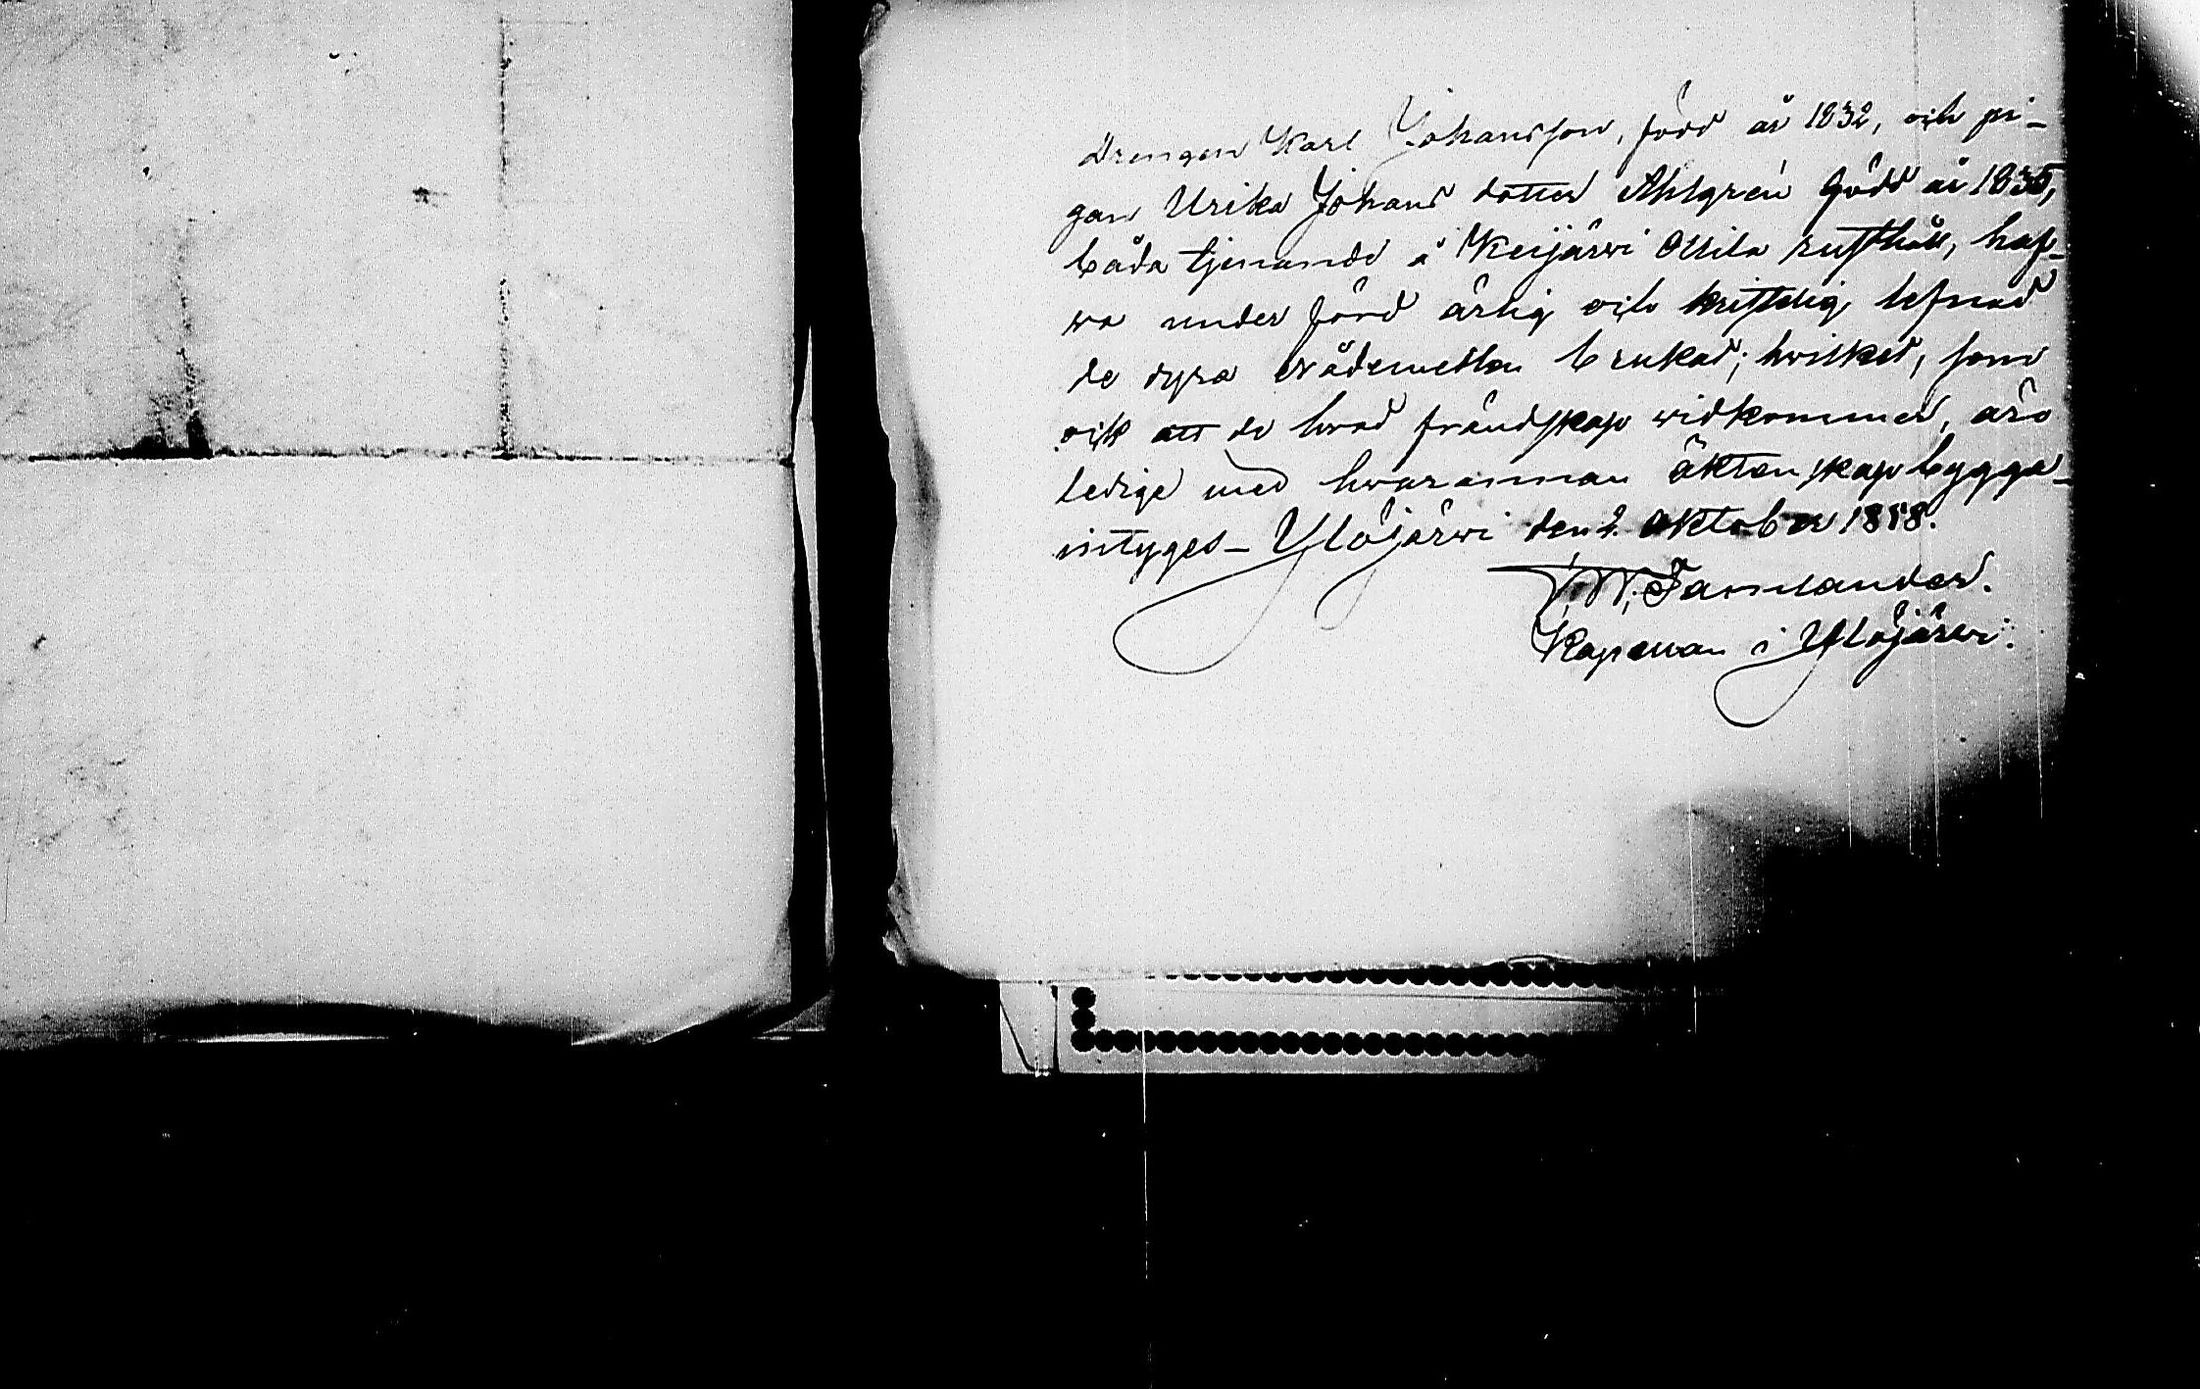 Drengen Karl Johansson, född år 1832, och pi-
gan Urika Johans dotter Ahlgrén född år 1835,
båda tjenande å Keijärwi Ollila rusthåll, haf-
wa under förd ärlig och kristelig lefnad
de dyra Nådemedlen brukat; hwilket, som
och att de hwad frändskap widkommer, äro
ledige med hwarannan äktenskap bygga
intyges_ Ylöjärwi den 2. Oktober 1858.
Kapellan i Ylöjärwi.